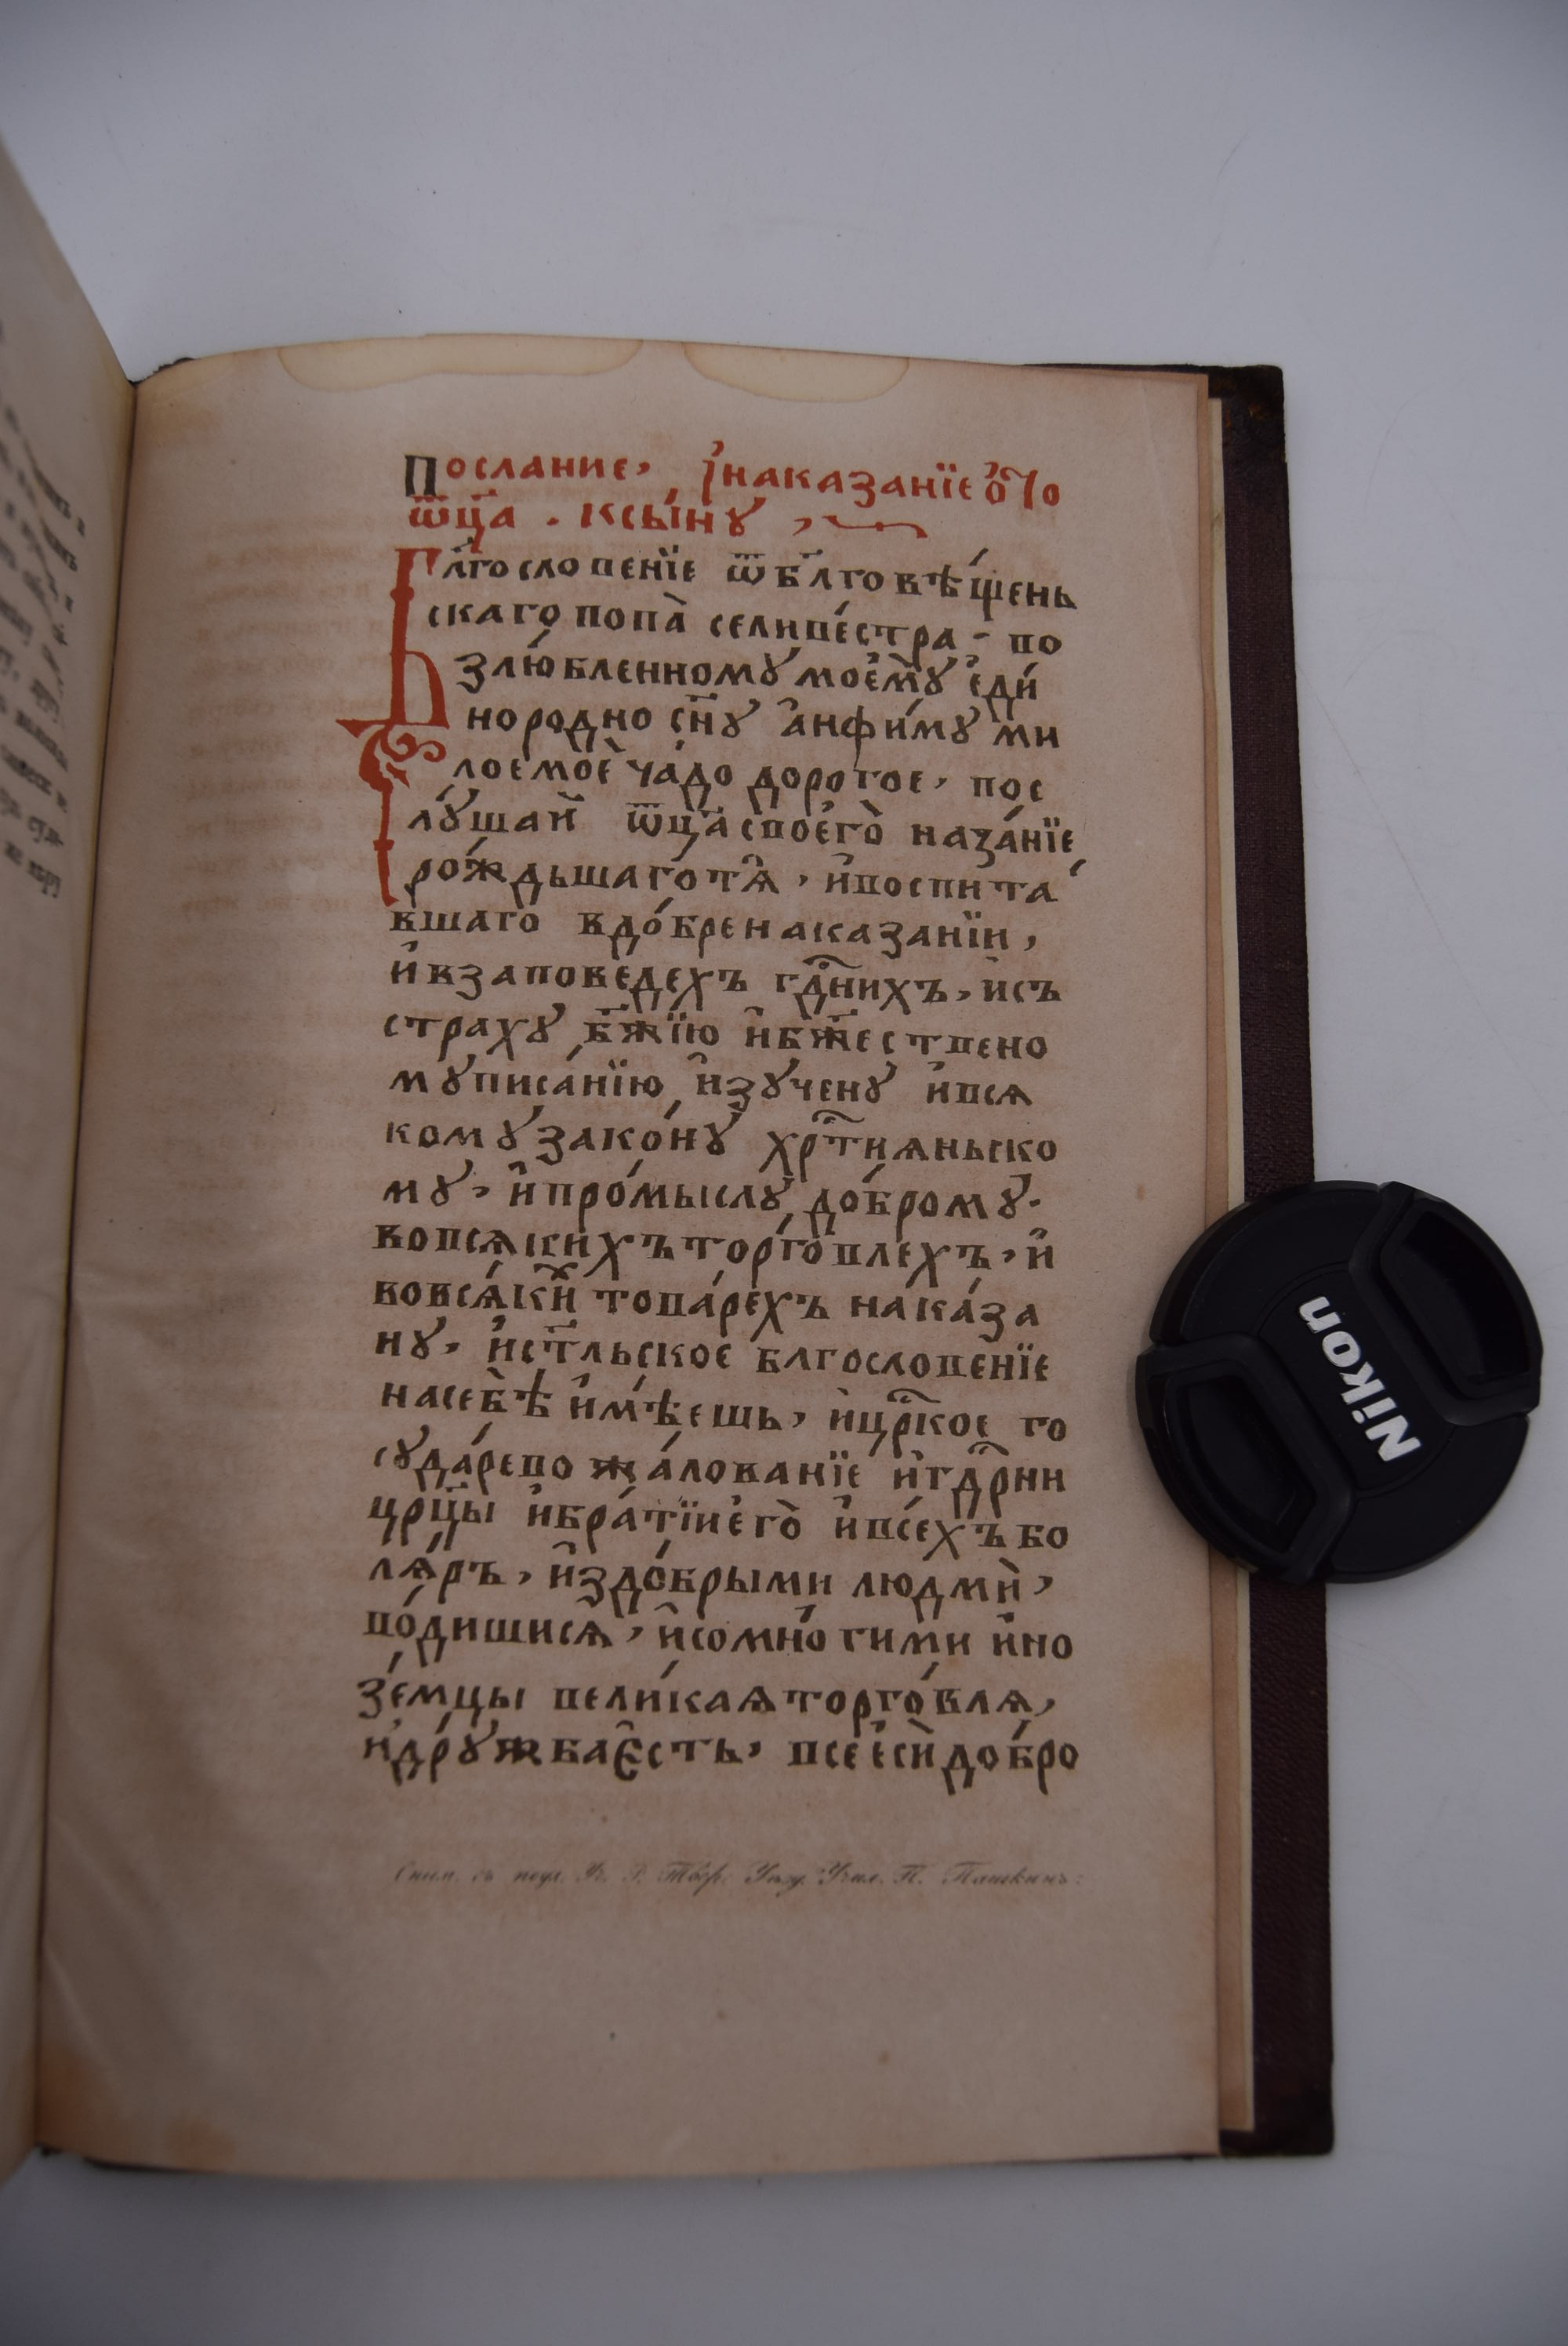 Послание, і наказанїе ѿ
ѿц҃а . к сы́нꙋ ,
Бл҃гослоvенїе ѿ бл҃говѣ́щень
скаго попа̀ селиве́стра - во
злю́бленномꙋ моемꙋ̀ еди́
нородно сн҃ꙋ анфи́мꙋ ми
лое моѐ ча́до дорогое, пос
лꙋ́шай ѿц҃а своего̀ наза́нїе
ро́ждьшаго тѧ̀, и воспита́
вшаго в до́бре наказанїи,
и в заповедехъ гд҃нихъ, и съ
страхꙋ бж҃їю и бж҃ествено
мꙋ писа́нїю, изꙋченꙋ и всѧ
комꙋ зако́нꙋ хрⷭ҇тиѧньско
мꙋ, и про́мыслꙋ до́бромꙋ.
во всѧкихъ торго́влехъ, и
во всѧ́киⷯ това́рехъ нака́за
нꙋ, и ст҃льское блгословенїе
на себѣ̀ имѣ́ешь, и црⷭ҇кое го
сꙋда́рево жа́лованїе и гдⷭ҇рни
цр҃цы и бра́тїи его̀ и все́хъ бо
лѧ́ръ, и з до́брыми людмѝ,
во́дишисѧ, и со мно́гими ино
зе́мцы вели́каѧ торго́влѧ,
и дрꙋ́жба є́сть, все есѝ добро
Сним. съ подл. Уч. Р. Твер. Уѣзд. Учил. П. Пашкинъ.
Nikon